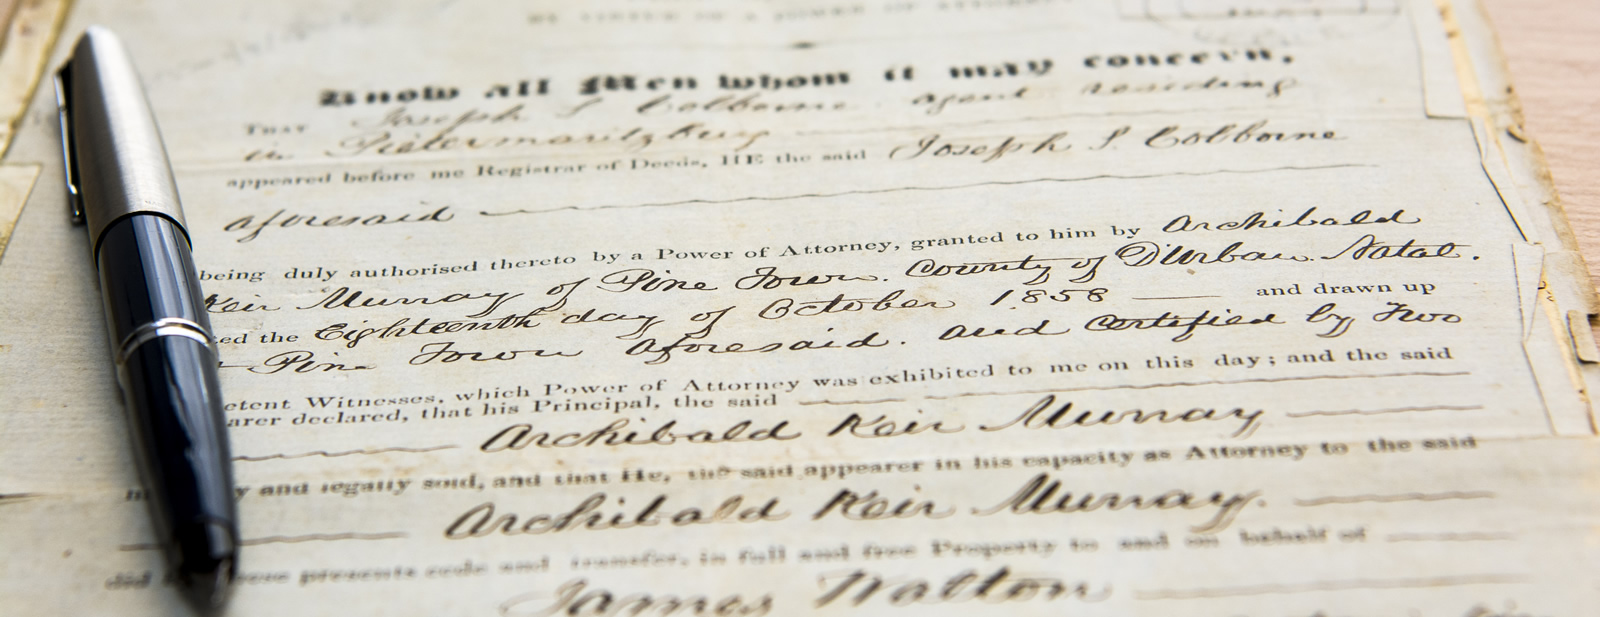 BY VIRTUE OF A POWER OF ATTORNEY
Know all Men whom it may concern,
THAT Joseph S Colborne agent residing
in Pietermaritzburg
appeared before me Registrar of Deeds, HE the said Joseph S. Colborne
aforesaid
being duly authorised thereto by a Power of Attorney, granted to him by Archibald
Keir Murray of Pine Town. County of D'Urban. Natal.
ed the Eighteenth day of October 1858 and drawn up
Pine Town aforesaid. and certified by Two
etent Witnesses, which Power of Attorney was exhibited to me on this day; and the said
arer declared, that his Principal, the said
Archibald Keir Murray
y and legally sold, and that He, the said appearer in his capacity as Attorney to the said
Archibald Keir Murray.
did ese presents cede and transfer, in full and free Property to and on behalf of
James Walton